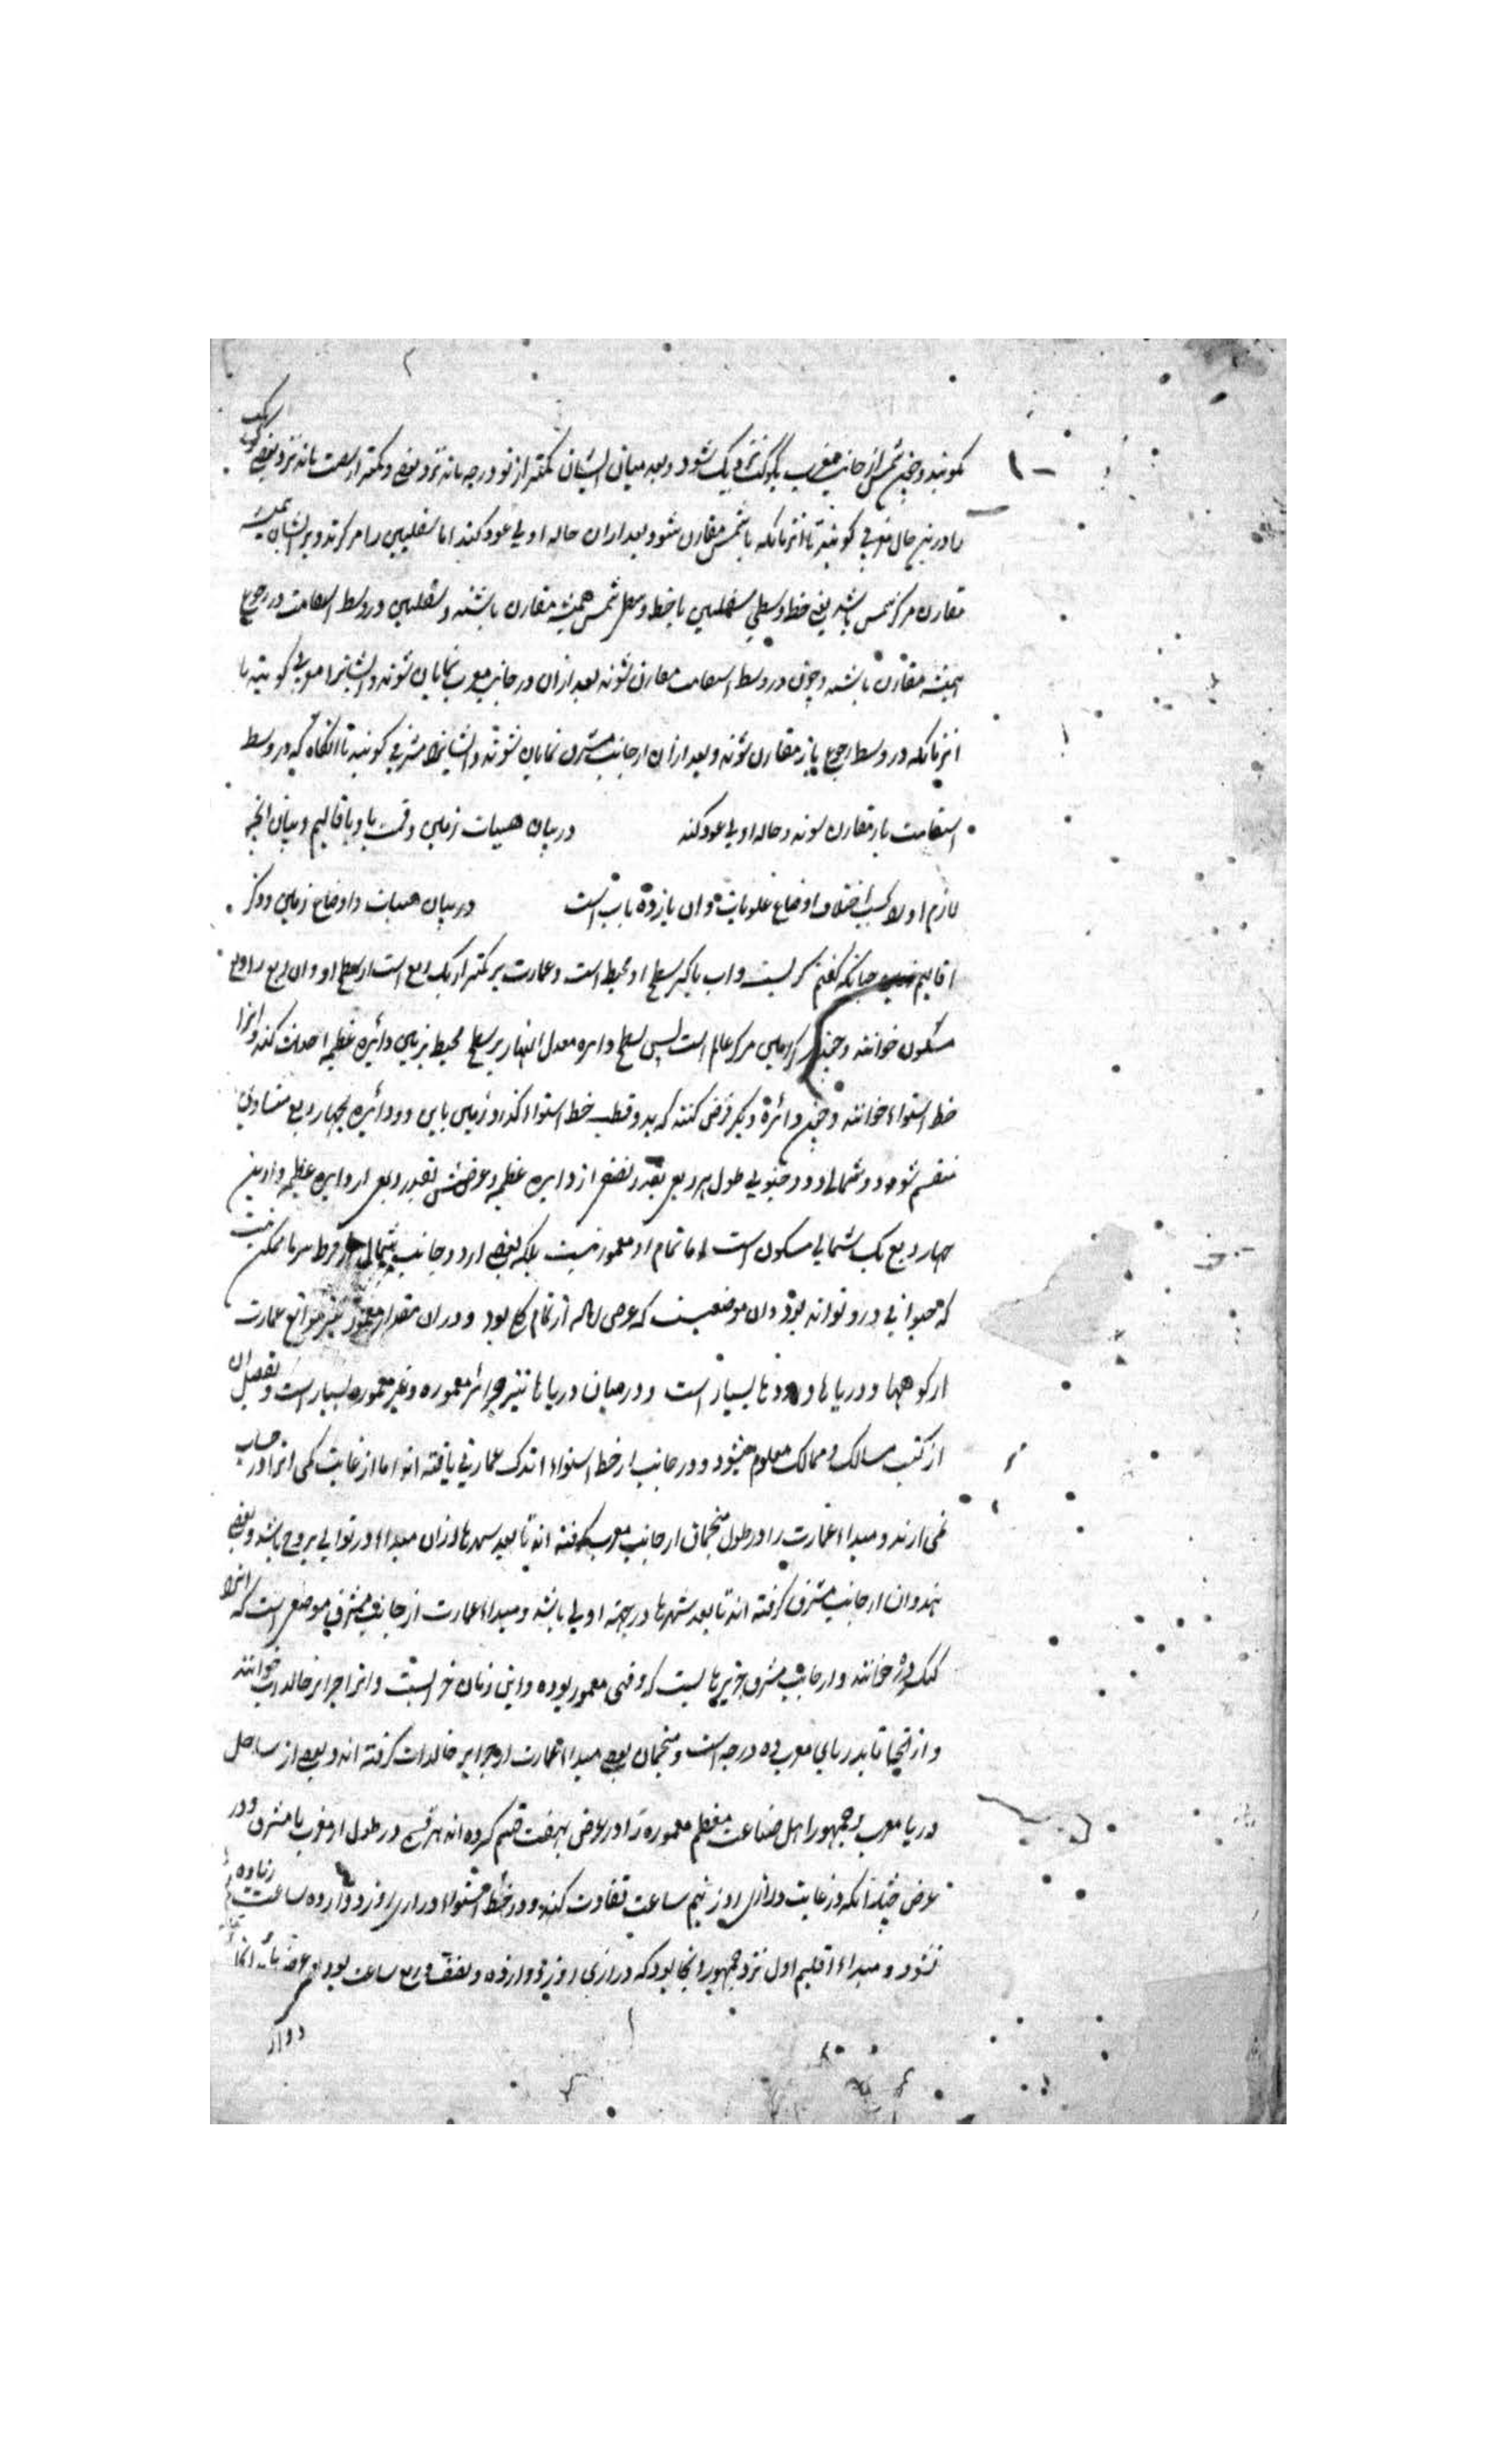 کویند و چون شمس از جانب مغرب بکوکب نزدیک شود و بعد میان ایشان کمتر از نود درجه ماند نزد بعضی و کمتر از شصت ماند نزد بعضی کوکب
را درین حال مغربی کویند تا انزمانکه با شمس مقارن شود بعد ازان حاله اولی عود کند اما سفلیین را مرکز تدویر ایشان همیشه
مقارن مرکز شمس باشد یعنی خط وسطی سفلیین با خط وسطی شمس همیشه مقارن باشند و سفلیین در وسط استقامت و رجوع
همیشه مقارن باشند و چون در وسط استقامت مقارن شوند بعد ازان در جانب مغرب نمایان شوند و ایشانرا مغربی کویند تا
انزمانکه در وسط رجوع باز مقارن شوند و بعد ازان از جانب مشرق نمایان شوند و ایشانرا مشرقی کویند تا آنکاه که در وسط
استقامت باز مقارن شوند و حاله اولی عود کند در بیان هیات زمین و قسمت باقالیم و بیان انچه
لازم اولا بحسب اختلاف اوضاع علویات و ان یازده باب است در بیان هیات و اوضاع زمین و ذکر
اقالیم چنانکه کفتم کریست و اب باکثر سطح او محیط است و عمارت بر کمتر از یک ربع است از سطح او و ان ربع را ربع
مسکون خوانند و چون مرکز زمین مرکز عالم است پس سطح دایره معدل النهار بر سطح محیط بزمین دایره عظیمه احداث کند و انرا
خط استواء خوانند و چون دائرۀ دیکر فرض کنند که بدو قطب خط استواء کذرد زمین باین دو دائره بچهار ربع متساوی
منقسم شود دو شمالی و دو جنوبی طول هر ربعی بقدر نصفی از دایره عظیمه و عرضش بقدر ربعی از دایره عظیمه و ازین
چهار ربع یک شمالی مسکون است اما تمام او معمور نیست بلکه بعضی ازو در جانب شمالی از فرط سرما ممکن نیست
که حیوانی درو تواند بود و ان موضعیست که عرض او از تمام میل کلی بود و در ان مقدار معمور نیز موانع عمارت
از کوهها و دریاها و رودها بسیار است و در میان دریاها نیز جزائر معموره و غیر معموره بسیار است و تفصیل ان
از کتب مسالک و ممالک معلوم میشود و در جانب از خط استواء اندک عمارتی یافته اند اما از غایت کمی انرا در حساب
نمی ارند و مبداء عمارت را در طول منجمان از جانب مغرب کرفته اند تا بعد شهرها ازان مبداء در توالی بروج باشد و بعضی
هندوان از جانب مشرق کرفته اند تا بعد شهرها در جهة اولی باشد و مبداء عمارت از جانب مشرق موضعی است که انرا
کنک دژ خوانند و از جانب مشرق جزیرهاییست که وقتی معمور بوده و این زمان خراب است و انرا جزایر خالدات خوانند
و از انجا تا بدریای مغرب ده درجه است و منجمان بعضی مبداء عمارت از جزایر خالدات کرفته اند و بعضی از ساحل
دریا مغرب و جمهور اهل صناعت معظم معموره را در عرض بهفت قسم کرده اند هر قسمی در طول از مغرب تا مشرق و در
عرض چندانکه در غایت درازی روز نیم ساعت تفاوت کند و در خط استواء درازی روز دوازده ساعت زیاده
نشود و مبداء اقلیم اول نزد جمهور انجا بود که درازی روز دوازده و نصف و ربع ساعت بود و عرض
دواز